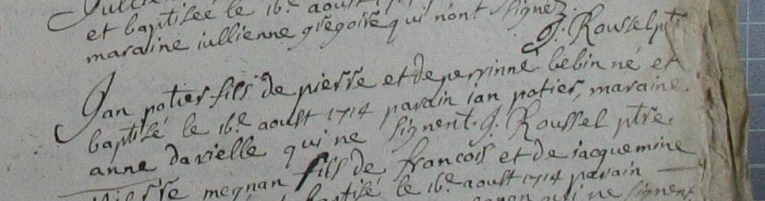 et baptisée le 16e aoust
maraine iullienne gregoire qui nont signez
J. Roussel ptre
Jan potier fils de pierre et de perrinne bebin né et
baptisé le 16e aoust 1714 parain ian potier, maraine
anne darielle qui ne signent. J. Roussel ptre.
pierre megnan fils de francois et de iacquemine
baptisé le 16e aoust 1714 parain
qui ne signent